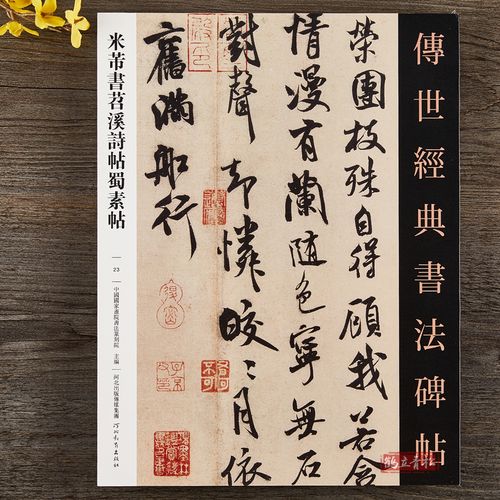 傳世經典書法碑帖
榮團枝殊自得顧我若含
情漫有蘭隨色寧無石
對聲却憐皎〻月依
舊滿船行
米芾書苕溪詩帖蜀素帖
23
中國國家畫院書法篆刻院 主編
河北出版傳媒集團 河北教育出版社